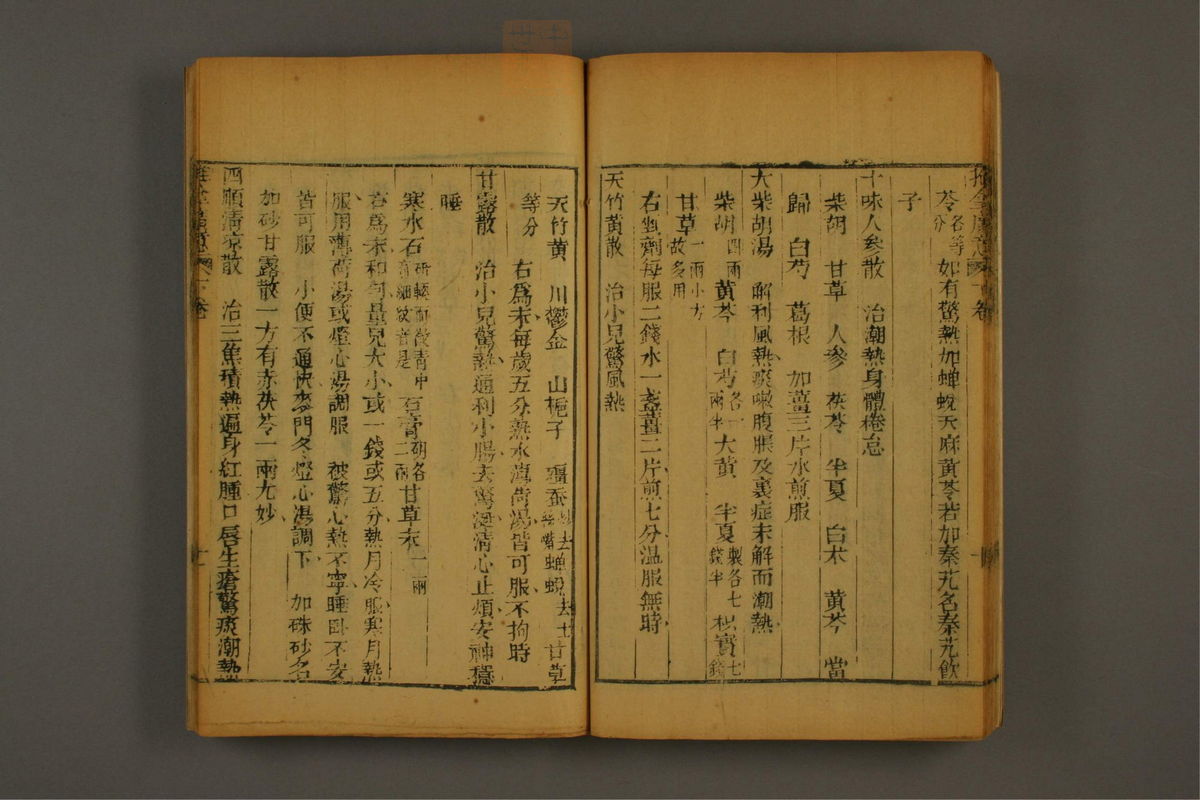 苓各等分如有驚熱加蟬蛻天麻黃芩若加秦艽名秦艽飲
子
十味人參散　治潮熱身體倦怠
柴胡　甘草　人參　茯苓　半夏　白朮　黃芩　當
歸　白芍　葛根　加薑三片水煎服
大柴胡湯　解利風熱痰嗽腹脹及裏症未解而潮熱
柴胡四兩　黃芩　白芍各一兩半　大黃　半夏製各七錢半　枳實七錢
甘草一兩小方故多用
右㕮劑每服二錢水一盞薑二片煎七分温服無時
天竹黃散　治小兒驚風熱
天竹黃　川鬱金　山梔子　殭蚕炒去絲嘴　蟬蛻去土　甘草
等分
右為末每歲五分熱水薄荷湯皆可服不拘時
甘露散　治小兒驚熱通利小腸去驚涎清心止煩安神穩
睡
寒水石　石膏研各二兩　甘草末一兩
右為末和勻量兒大小或一錢或五分熱月冷服寒月熱
服用薄荷湯或燈心湯調服　被驚心熱不寧睡卧不安
皆可服　小便不通快麥門冬燈心湯調下　加硃砂名
加砂甘露散一方有赤茯苓一兩尤妙
四順清凉散　治三焦積熱遍身紅腫口唇生瘡驚痰潮熱